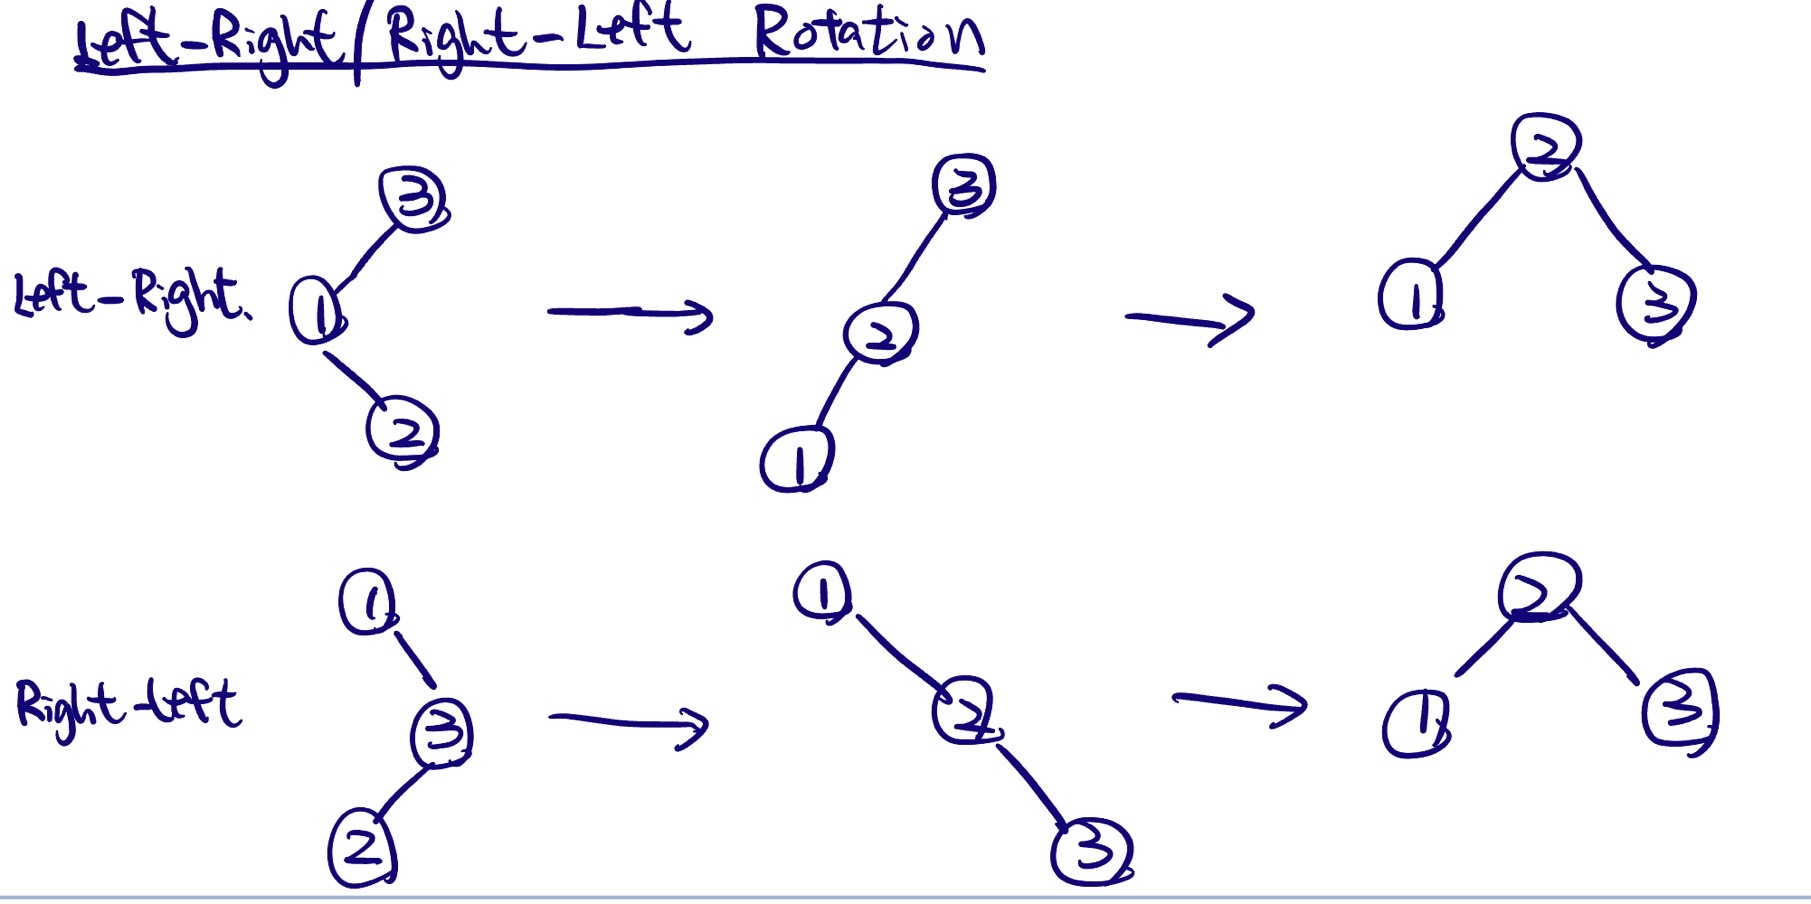 Left-Right/Right-Left Rotation
3
3
2
Left-Right.
1
2
1
3
2
1
1
1
2
Right-Left
3
2
1
3
2
3